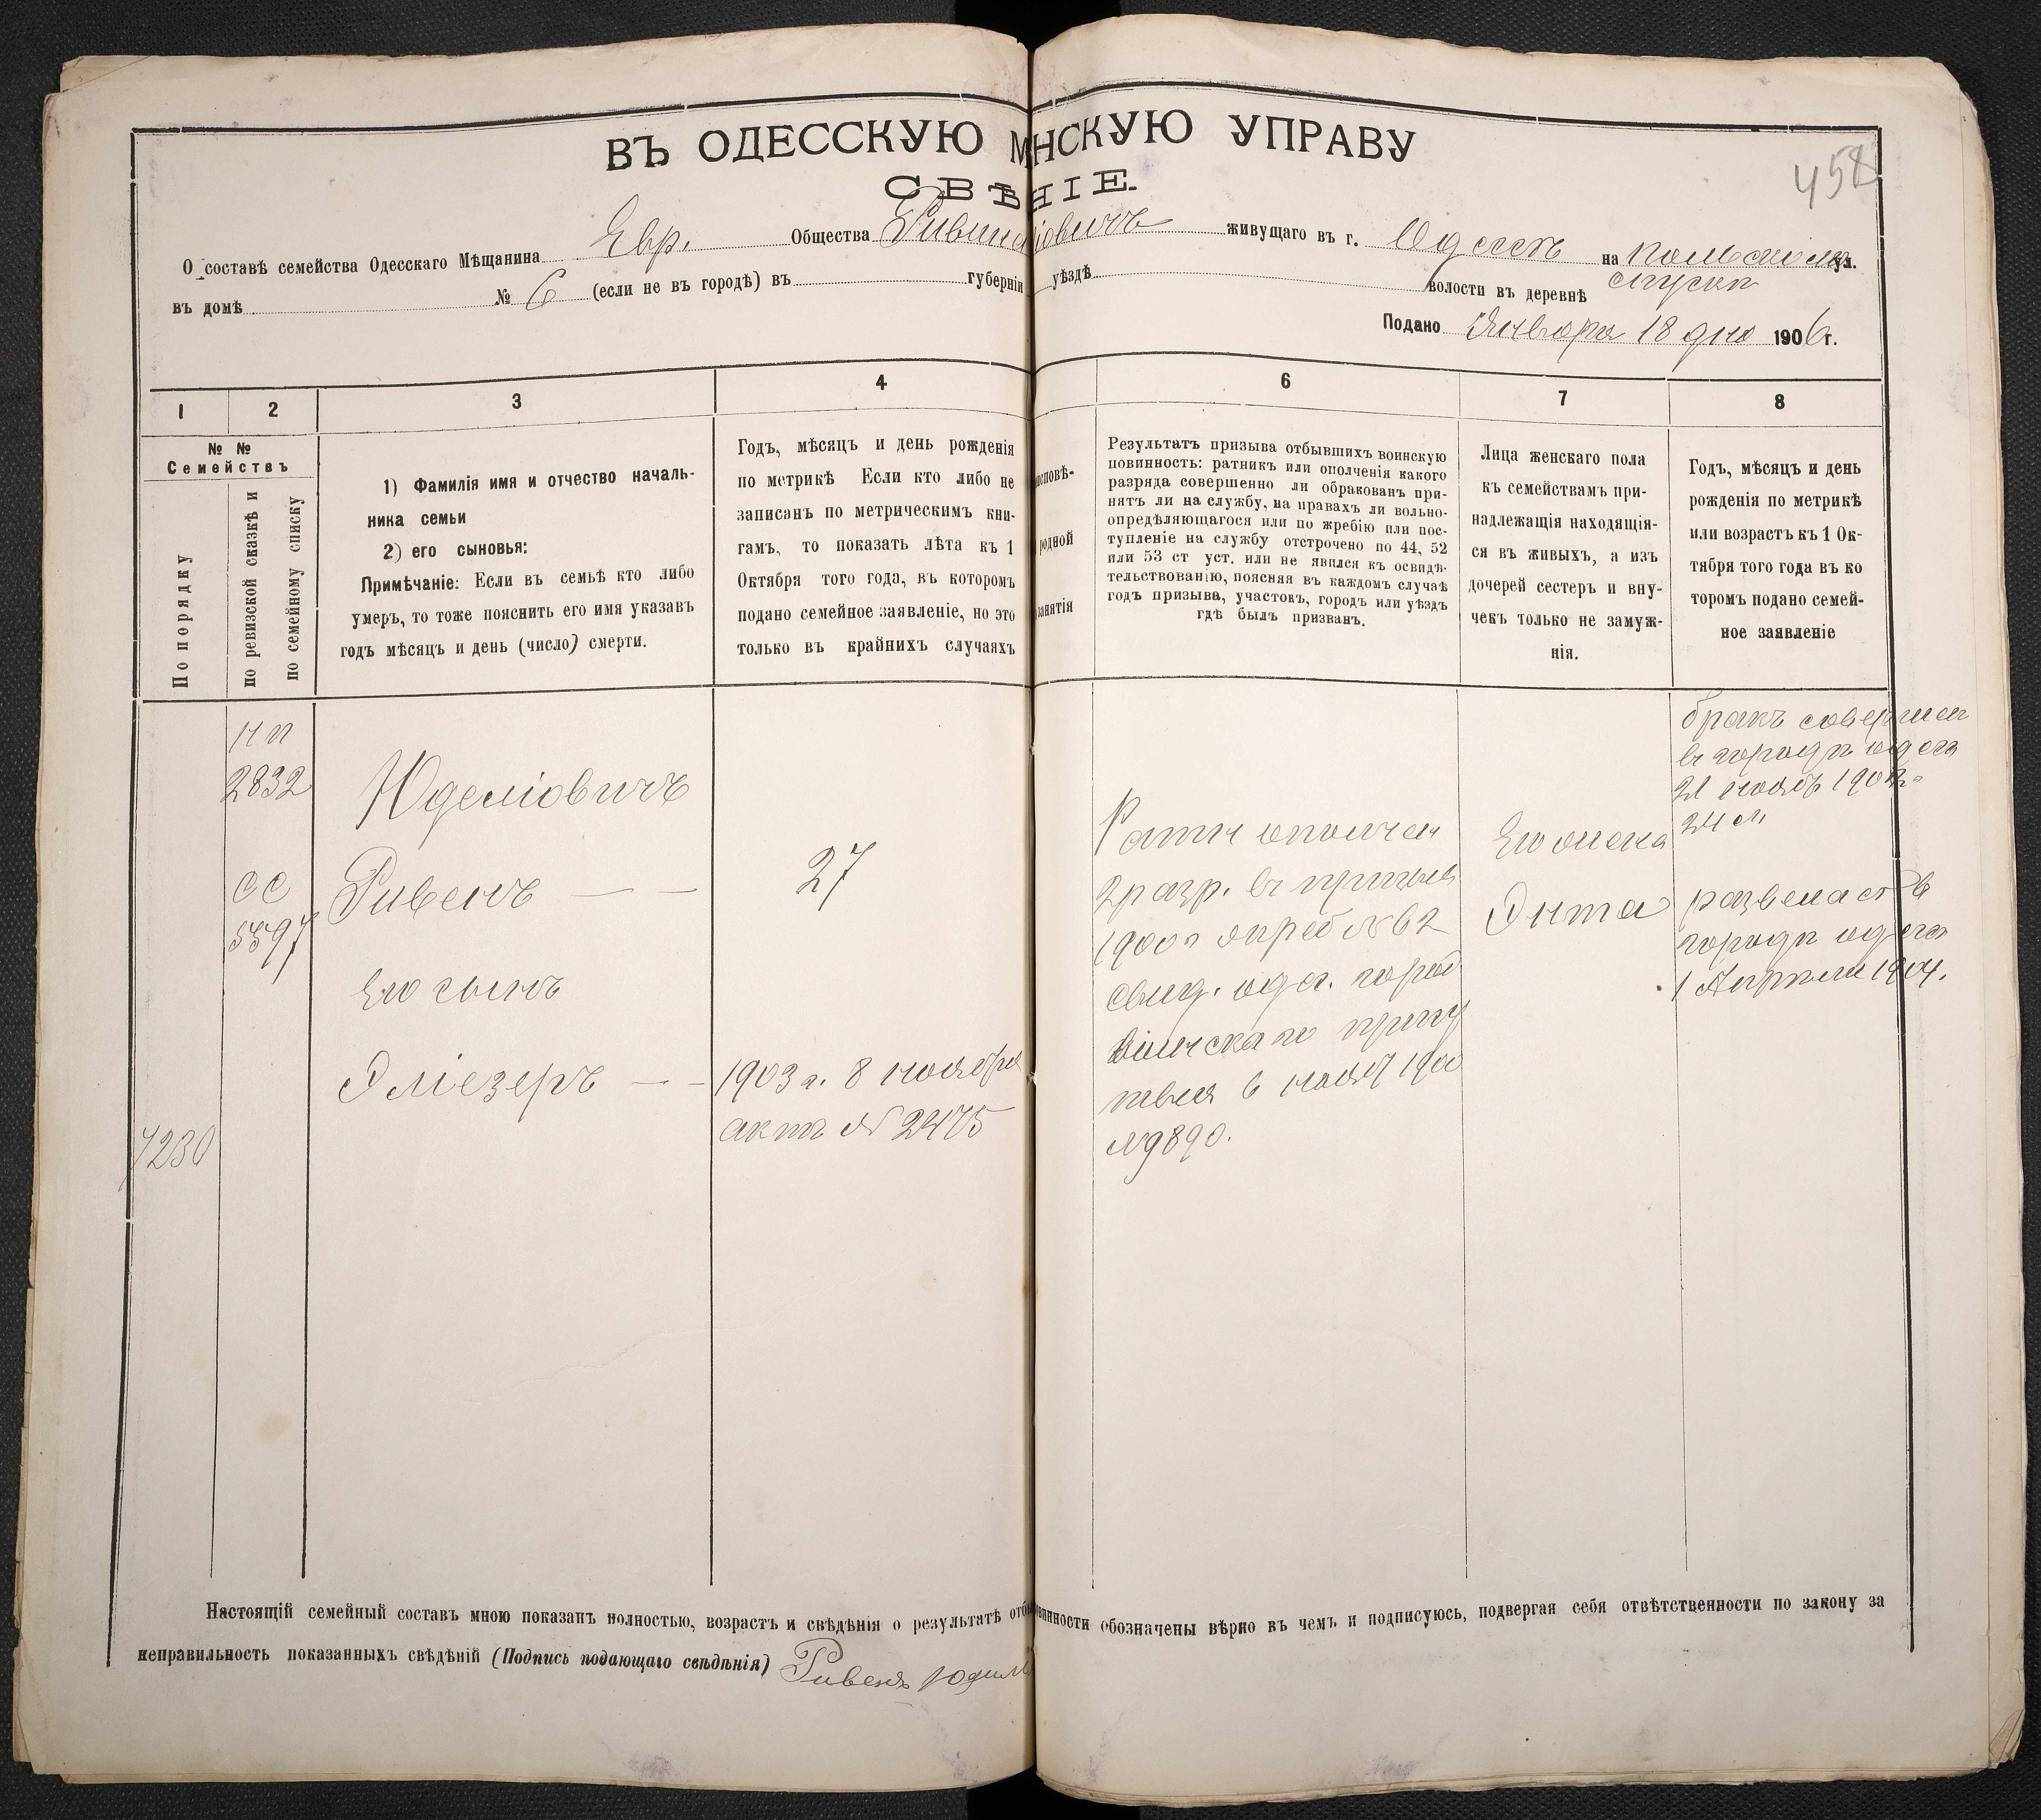 ВЪ ОДЕССКУЮ М НСКУЮ УПРАВУ
СВѢ НІЕ.
458
О составѣ семейства Одесскаго Мѣщанина Евр. Общества живущаго въ г. Одессѣ на ул.
въ домѣ № 6 (если не въ городѣ) въ губерніи уѣздѣ волости въ деревнѣ спускѣ
Подано Января 18 дня 1906 г.
1 2 3 4 6 7 8
№ №
Семействъ
По порядку
по ревизской сказкѣ и
по семейному списку
1) Фамилія имя и отчество началь-
ника семьи
2) его сыновья:
Примѣчаніе: Если въ семьѣ кто либо
умеръ, то тоже пояснить его имя указавъ
годъ мѣсяцъ и день (число) смерти.
Годъ, мѣсяцъ и день рожденія
по метрикѣ Если кто либо не
записанъ по метрическимъ кни-
гамъ, то показать лѣта къ 1
Октября того года, въ которомъ
подано семейное заявленіе, но это
только въ крайнихъ случаяхъ
исповѣ-
родной
занятія
Результатъ призыва отбывшихъ воинскую
повинность: ратникъ или ополченія какого
разряда совершенно ли обракованъ при-
нятъ ли на службу, на правахъ ли вольно-
опредѣляющагося или по жребію пли пос-
тупленіе на службу отстрочено по 44, 52
или 53 ст уст. или не явился къ освидѣ-
тельствованію, поясняя въ каждомъ случаѣ
годъ призыва, участокъ, городъ или уѣздъ
гдѣ былъ призванъ.
Лица женскаго пола
къ семействамъ при-
надлежащія находящія-
ся въ живыхъ, а изъ
дочерей сестеръ и вну-
чекъ только не замуж-
нія.
Годъ, мѣсяцъ и день
рожденія по метрикѣ
или возрастъ къ 1 Ок-
тября того года въ ко
торомъ подано семей-
ное заявленіе
нп
2832
Юделіовичъ
сс
5597
Ривенъ — —
27
Его сынъ
Эліезеръ — —
1903 г. 8 ноября
актъ № 2475
7230
Ратн ополчен
2 разр. въ призыв
1900 г жреб № 62
свид. одес. город
воинскаго прису
твия 6 нояб 1900
№ 9890.
Его жена
Энта
бракъ совершен
въ городѣ одес
21 нояб 1902
24 л
развелась в
городѣ одесѣ
1 Апреля 1904.
Настоящій семейный составъ мною показанъ полностью, возрастъ и свѣдѣнія о результатѣ отбы винности обозначены вѣрно въ чемъ и подписуюсь, подвергая себя отвѣтственности по закону за
неправильность показанныхъ свѣдѣній (Подпись подающаго свѣдѣнія) Ривенъ